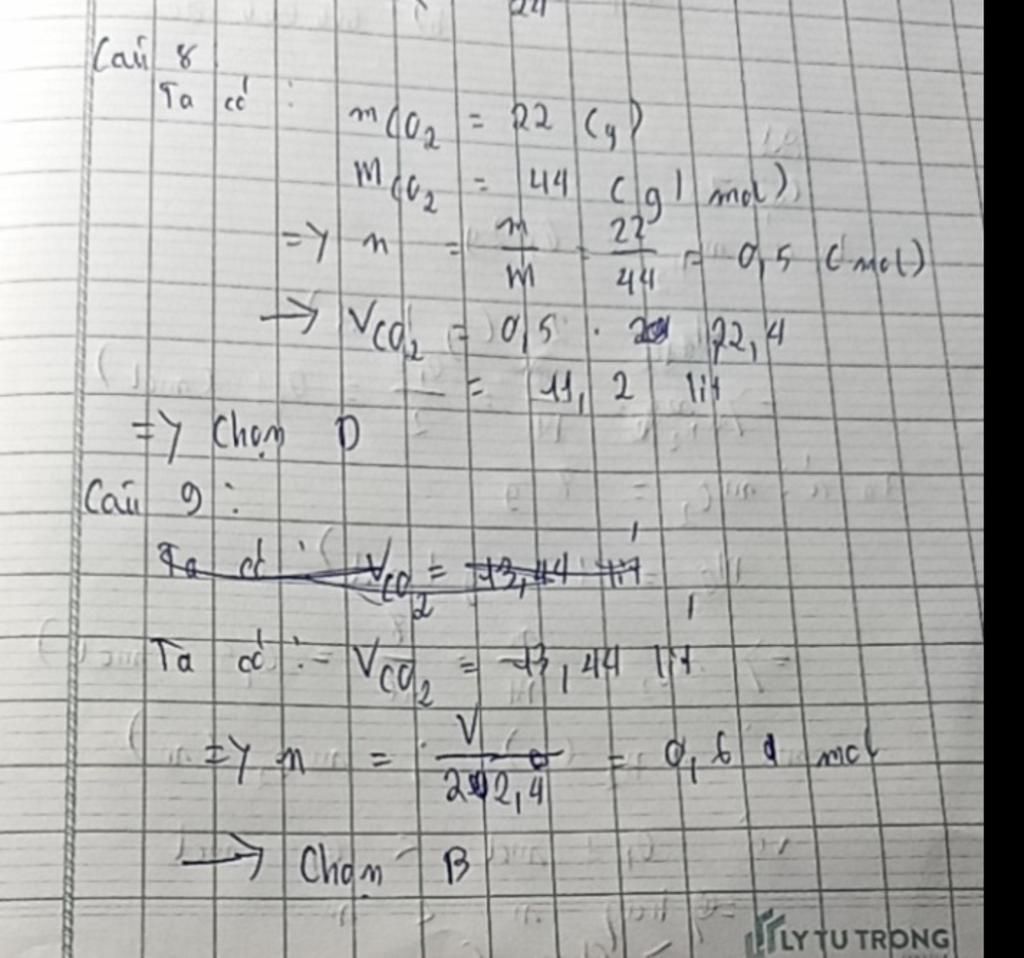 24
Câu 8
Ta có :
mCO2 = 22 (g)
MCO2 = 44 (g/mol)
=> n = m/M = 22/44 = 0,5 (mol)
→ VCO2 = 0,5 . 22,4
= 11,2 lít
=> Chọn D
Câu 9 :
Ta có : VCO2 = 13,44 lít
Ta có : VCO2 = 13,44 lít
=> n = V/22,4 = 0,6 mol
→ Chọn B
LY TU TRONG